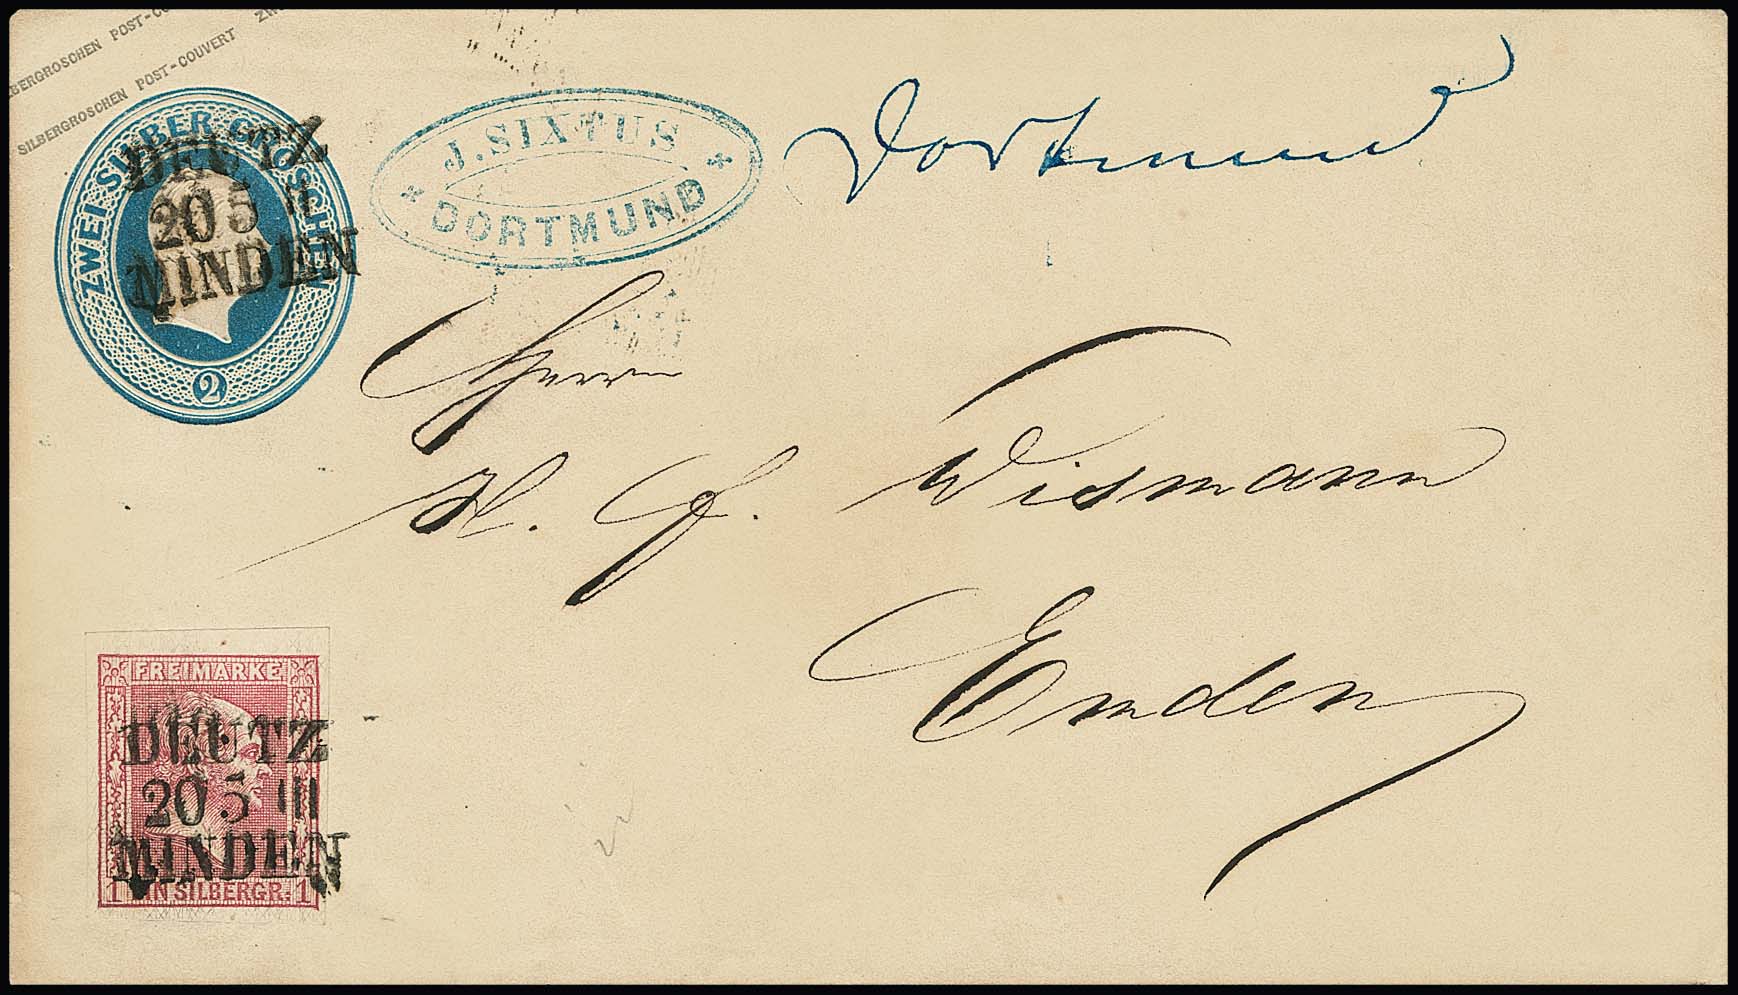 SILBERGROSCHEN POST-COUVERT ZW
SILBERGROSCHEN POST-COUVERT
ZWEI SILBER GROSCHEN
2
DEUTZ
20 5 III
MINDEN
J. SIXTUS
DORTMUND
Dortmund
Herrn
H. J. Wismann
Emden
FREIMARKE
DEUTZ
20 5 III
MINDEN
1 EIN SILBERGR. 1